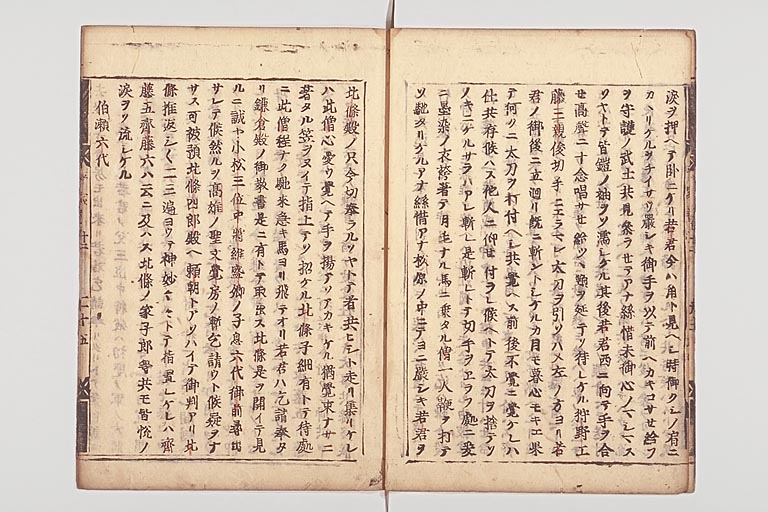 涙ヲ押ヘテ臥ニケリ若君今ハ角ト見ヘシ時御クシノ肩ニ
カヽリケルヲチイサウ嚴シキ御手ヲ以テ前ヘカキコサせ給フ
ヲ守護ノ武士共見奈ラせテアナ絲惜未御心ノマシマス
ソヤトテ皆鎧ノ袖ヲソ濡シケル其後君君西ニ向テ手ヲ合
せ高聲ニ十念唱サせ給ツヽ頸ヲ延テソ待レケル狩野工
藤三親俊切手ニエラマレ太刀ヲ引ソハメ左ノ方ヨリ若
君ノ御後ニ立廻リ既ニ斬ントシケルカ目モ暮心モキエ果
テ何クニ太刀ヲ打付ヘシ共覺ヘス前後不覺ニ覺ケレハ
仕共存候ハス他人ニ仰せ付ラレ候ヘトテ太刀ヲ捨テソ
ノキニケルサラハアレ斬レ是斬レトテ切手ヲエラフ處ニ爰
ニ墨染ノ衣袴着テ月毛ナル馬ニ乘タル僧一人鞭ヲ打テ
ソ馳タリケルアナ絲惜アナ松原ノ中ニテヨニ嚴シキ若君ヲ
北條殿ノ只今切奉ラルソヤトテ者共ヒシト走リ集リケレ
ハ此僧心憂ウ覺ヘテ手ヲ揚テソアカキケル猶覺束ナサニ
著タル笠ヲヌイテ指上テソ招ケル北條子細有トテ待處
ニ此僧程ナク馳來急キ馬ヨリ飛テオリ若君ハ乞請奉タ
リ鎌倉殿ノ御敎書是ニ有トテ取出ス北條是ヲ開イテ見
ルニ誠ヤ小松三位中將維盛卿ノ子息六代御前尋出
サレテ候然ルヲ高雄ノ聖文覺房ノ暫乞請ウト候疑ヲナ
サス可被預北條四郎殿ヘ賴朝トアソハイテ御判アリ北
條推返シ〱二三遍ヨウテ神妙々々トテ指置レケレハ齊
藤五齊藤六ハ云ニ及ハス北條ノ家子郎等共モ皆悦ノ
涙ヲソ流シケル
伯瀬六代